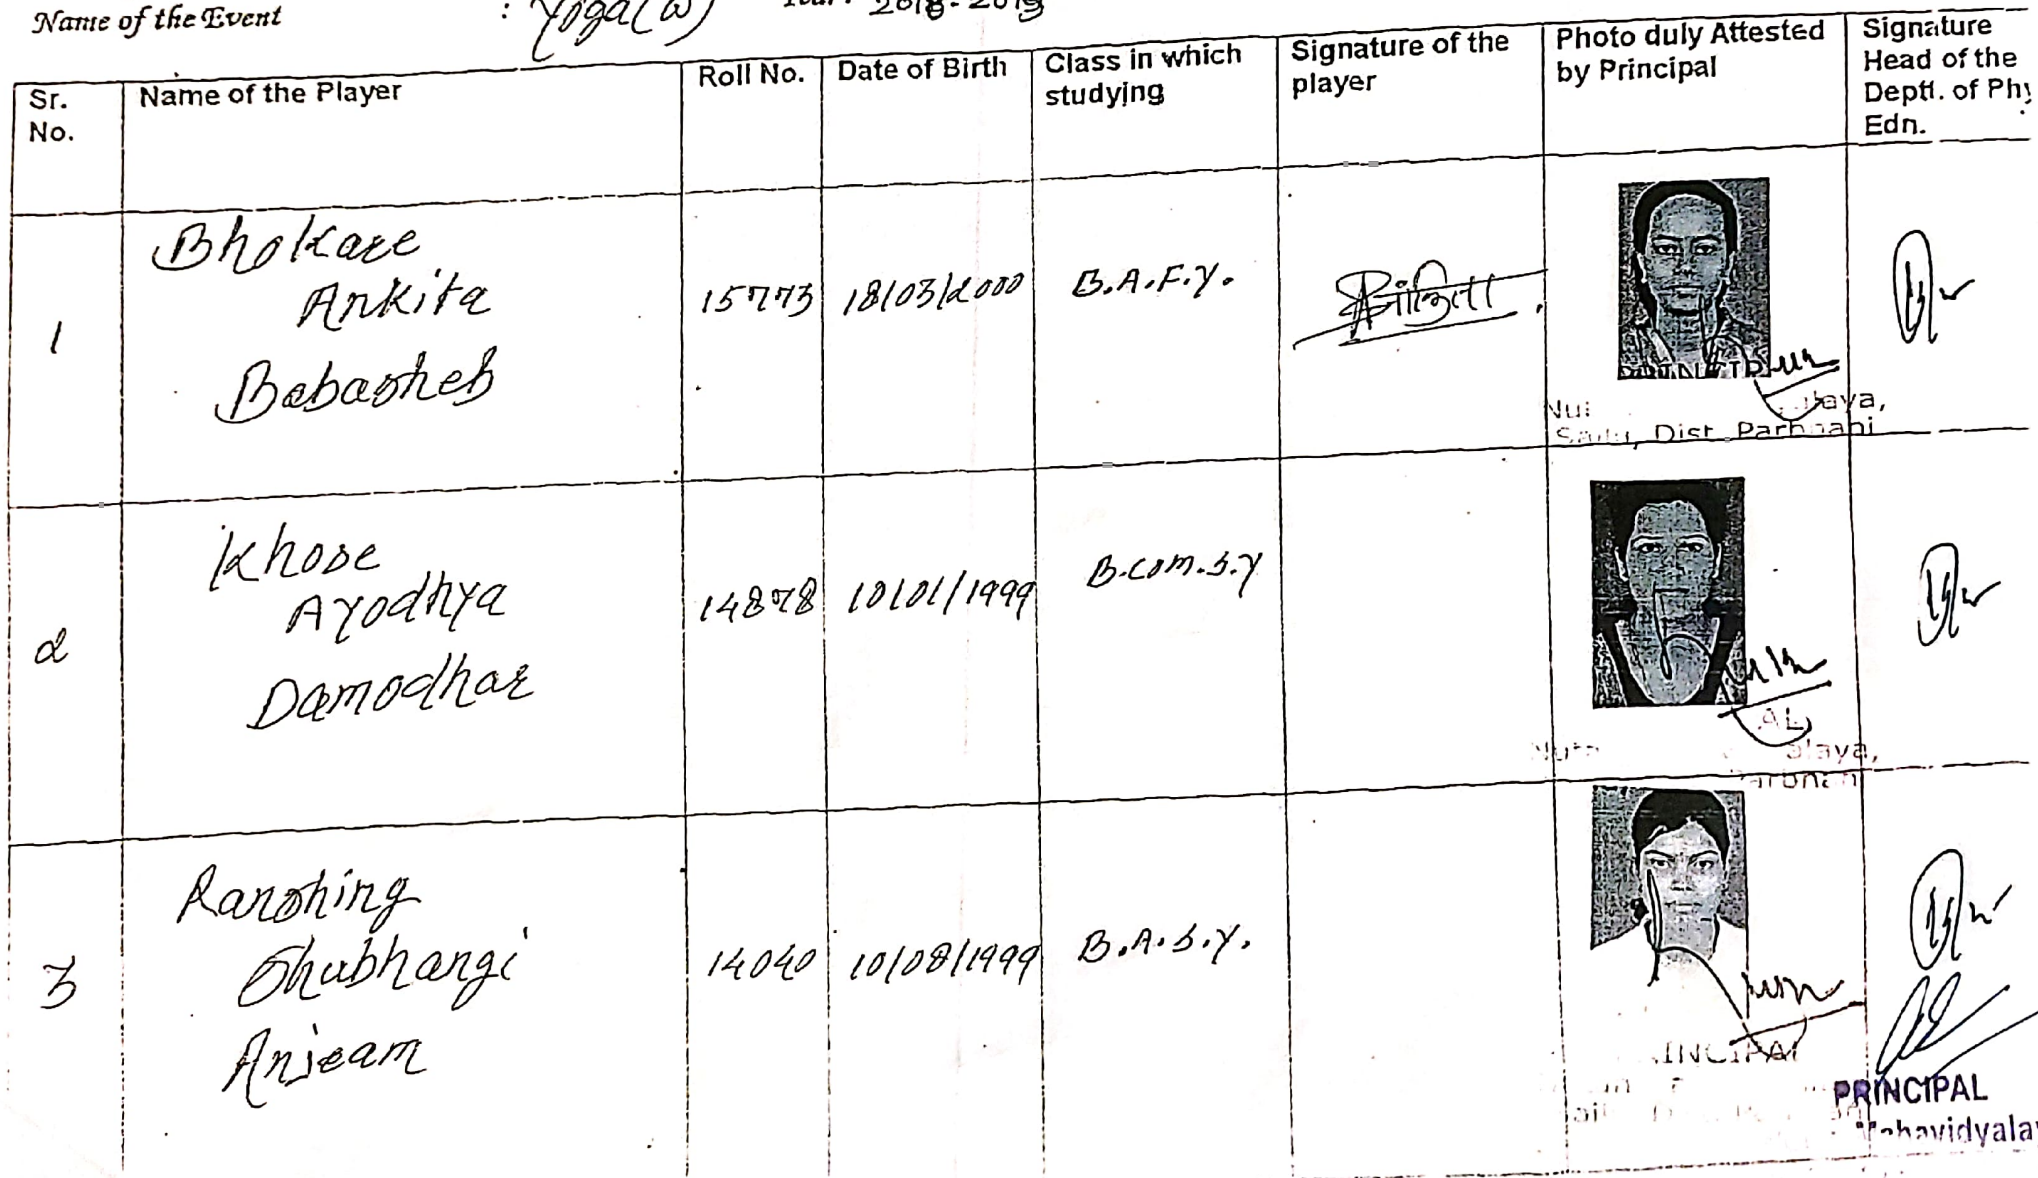 Name of the Event : Yoga(W) Year: 2018-2019
Sr. No.
Name of the Player
Roll No.
Date of Birth
Class in which studying
Signature of the player
Photo duly Attested by Principal
Signature Head of the Deptt. of Phy Edn.
1
Bhokare
Ankita
Babasheb
15773
18/03/2000
B.A.F.Y.
अंकिता
Dist. Parbhani
2
Khose
Ayodhya
Damodhar
14878
10/01/1999
B.com.s.y
3
Ranshing
Shubhangi
Anjeam
14040
10/08/1999
B.A.S.Y.
PRINCIPAL